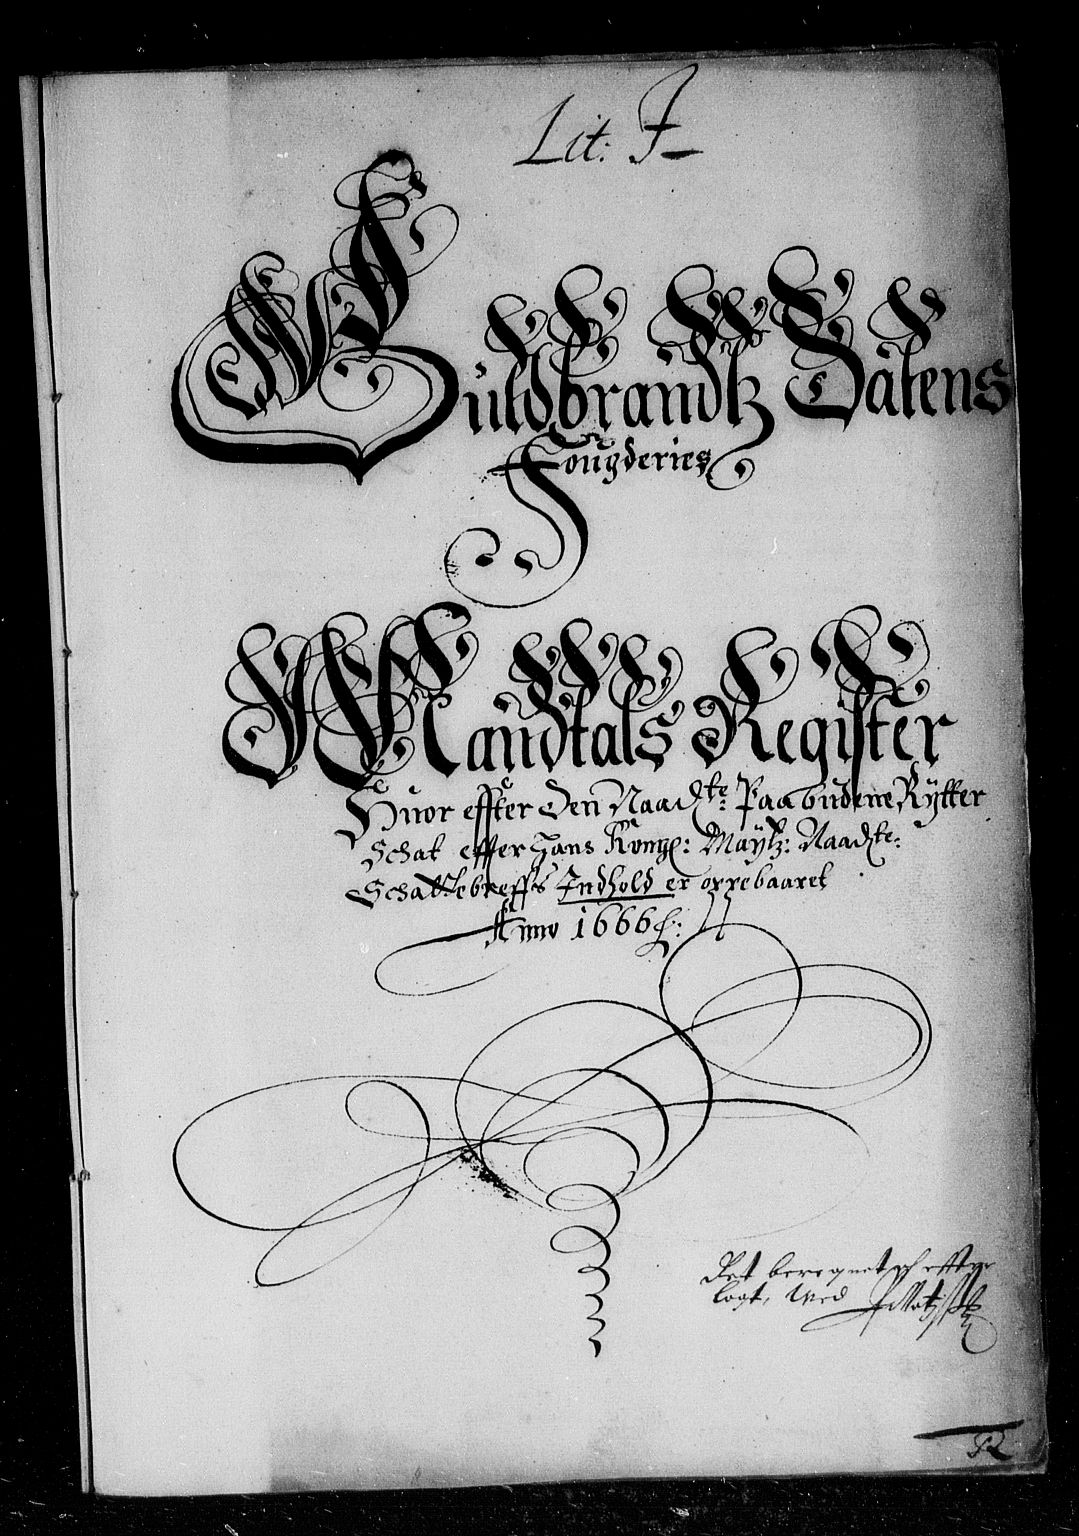 Lit: F
Guldbrandtz Dalens
Fougderies
Mandtals Register
Huor effter Den Naadste: Paabudene Rÿtter
Schat effter Hans Kongl: Maÿtz: Naadste:
Schattebreffs Indhold er oppebaaret
Anno 1666
Ret beregnet och efftter
lagt, Med